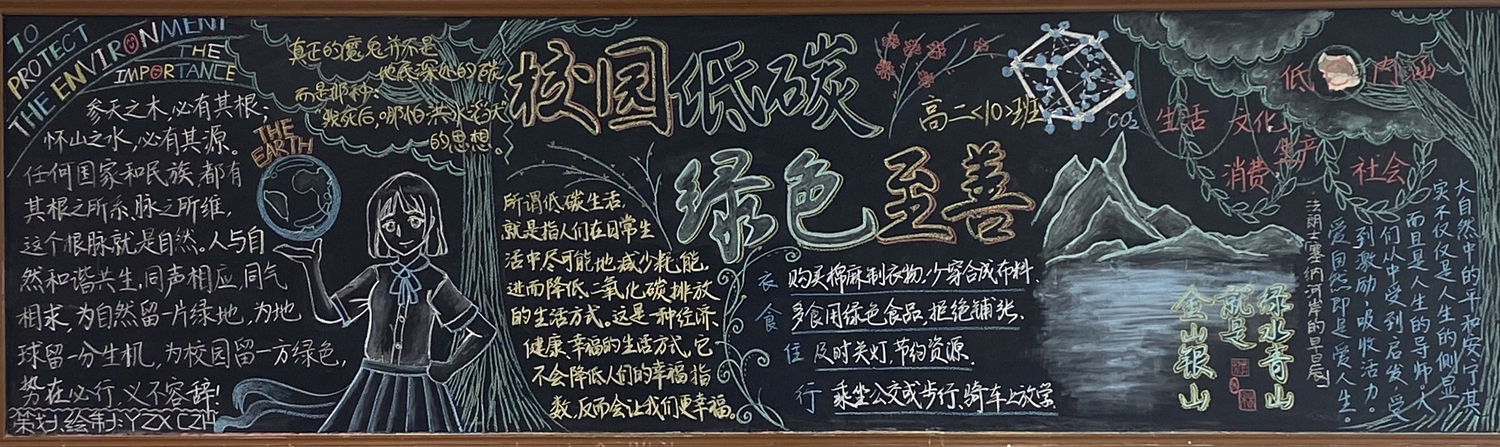 TO
PROTECT
THE ENVIRONMENT
THE
IMPORTANCE
参天之木,必有其根;
怀山之水,必有其源。
任何国家和民族都有
其根之所系,脉之所维,
这个根脉就是自然。人与自
然和谐共生,同声相应,同气
相求,为自然留一片绿地,为地
球留一分生机,为校园留一方绿色,
势在必行,义不容辞!
策划.绘制:YZX CZH
THE
EARTH
真正的魔鬼并不是
地底深处的碳
而是那种:
我死后,哪怕洪水滔天
的思想。
校园低碳
绿色至善
高二<10>班
CO₂
所谓低碳生活,
就是指人们在日常生
活中尽可能地减少耗能,
进而降低二氧化碳排放
的生活方式。这是一种经济、
健康、幸福的生活方式,它
不会降低人们的幸福指
数,反而会让我们更幸福。
衣 购买棉麻制衣物,少穿合成布料.
食 多食用绿色食品,拒绝铺张.
住 及时关灯,节约资源.
行 乘坐公交或步行、骑车上放学
低 内涵
生活
文化
消费
生产
社会
绿水青山
就是
金山银山
大自然中的平和安宁其
实不仅仅是人生的侧显,
而且是人生的导师。人
们从中受到启发,受
到鼓励,吸收活力。
爱自然即是爱人生。
法朗士塞纳河岸的早晨